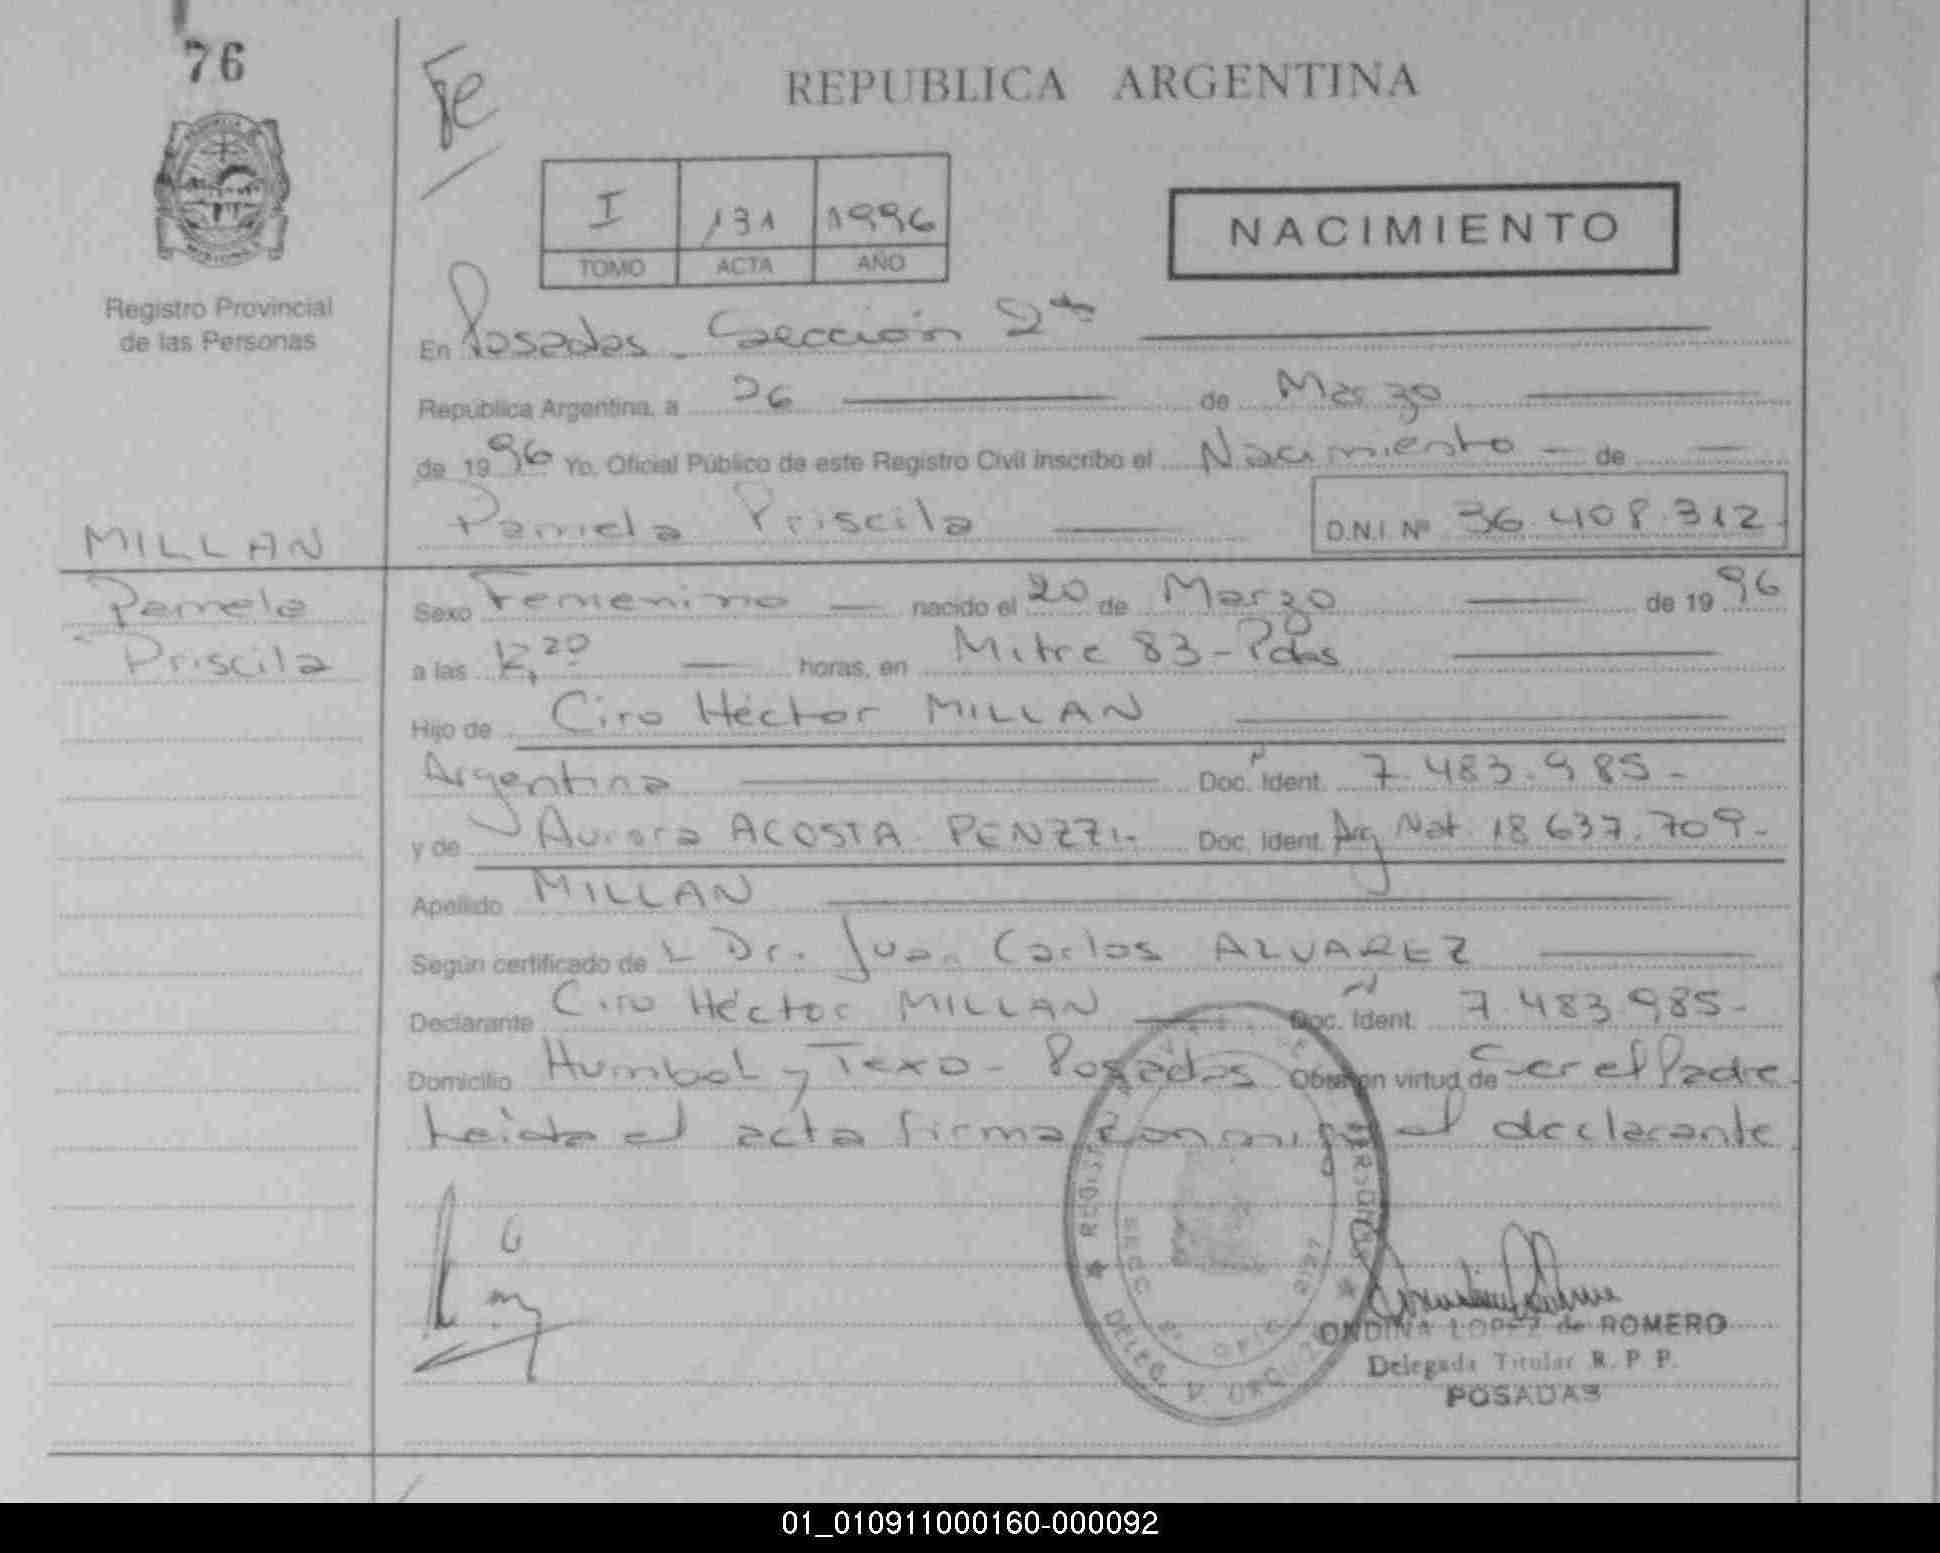 76
Fe
REPUBLICA ARGENTINA
I 131 1996
TOMO ACTA AÑO
NACIMIENTO
Registro Provincial
de las Personas
En Posadas - Sección 2da
República Argentina, a 26 de Marzo
de 1996 Yo, Oficial Público de este Registro Civil inscribo el Nacimiento - de -
Pamela Priscila D.N.I. Nº 36.408.312-
MILLAN
Pamela
Priscila
Sexo Femenino nacido el 20 de Marzo de 1996
a las 12,20 horas, en Mitre 83 - Pdas
Hijo de Ciro Héctor MILLAN
Argentina Doc. Ident. 7.483.985-
y de Aurora ACOSTA PENZZI- Doc. Ident. Arg Nat. 18.637.709-
Apellido MILLAN
Según certificado de L Dr. Juan Carlos ALVAREZ
Declarante Ciro Héctor MILLAN Doc. Ident. 7.483.985-
Domicilio Humbol y Texo - Posadas Obra en virtud de Ser el Padre
Leida el acta firma conmigo el declarante
ONDINA LOPEZ de ROMERO
Delegada Titular R. P. P.
POSADAS
01_010911000160-000092